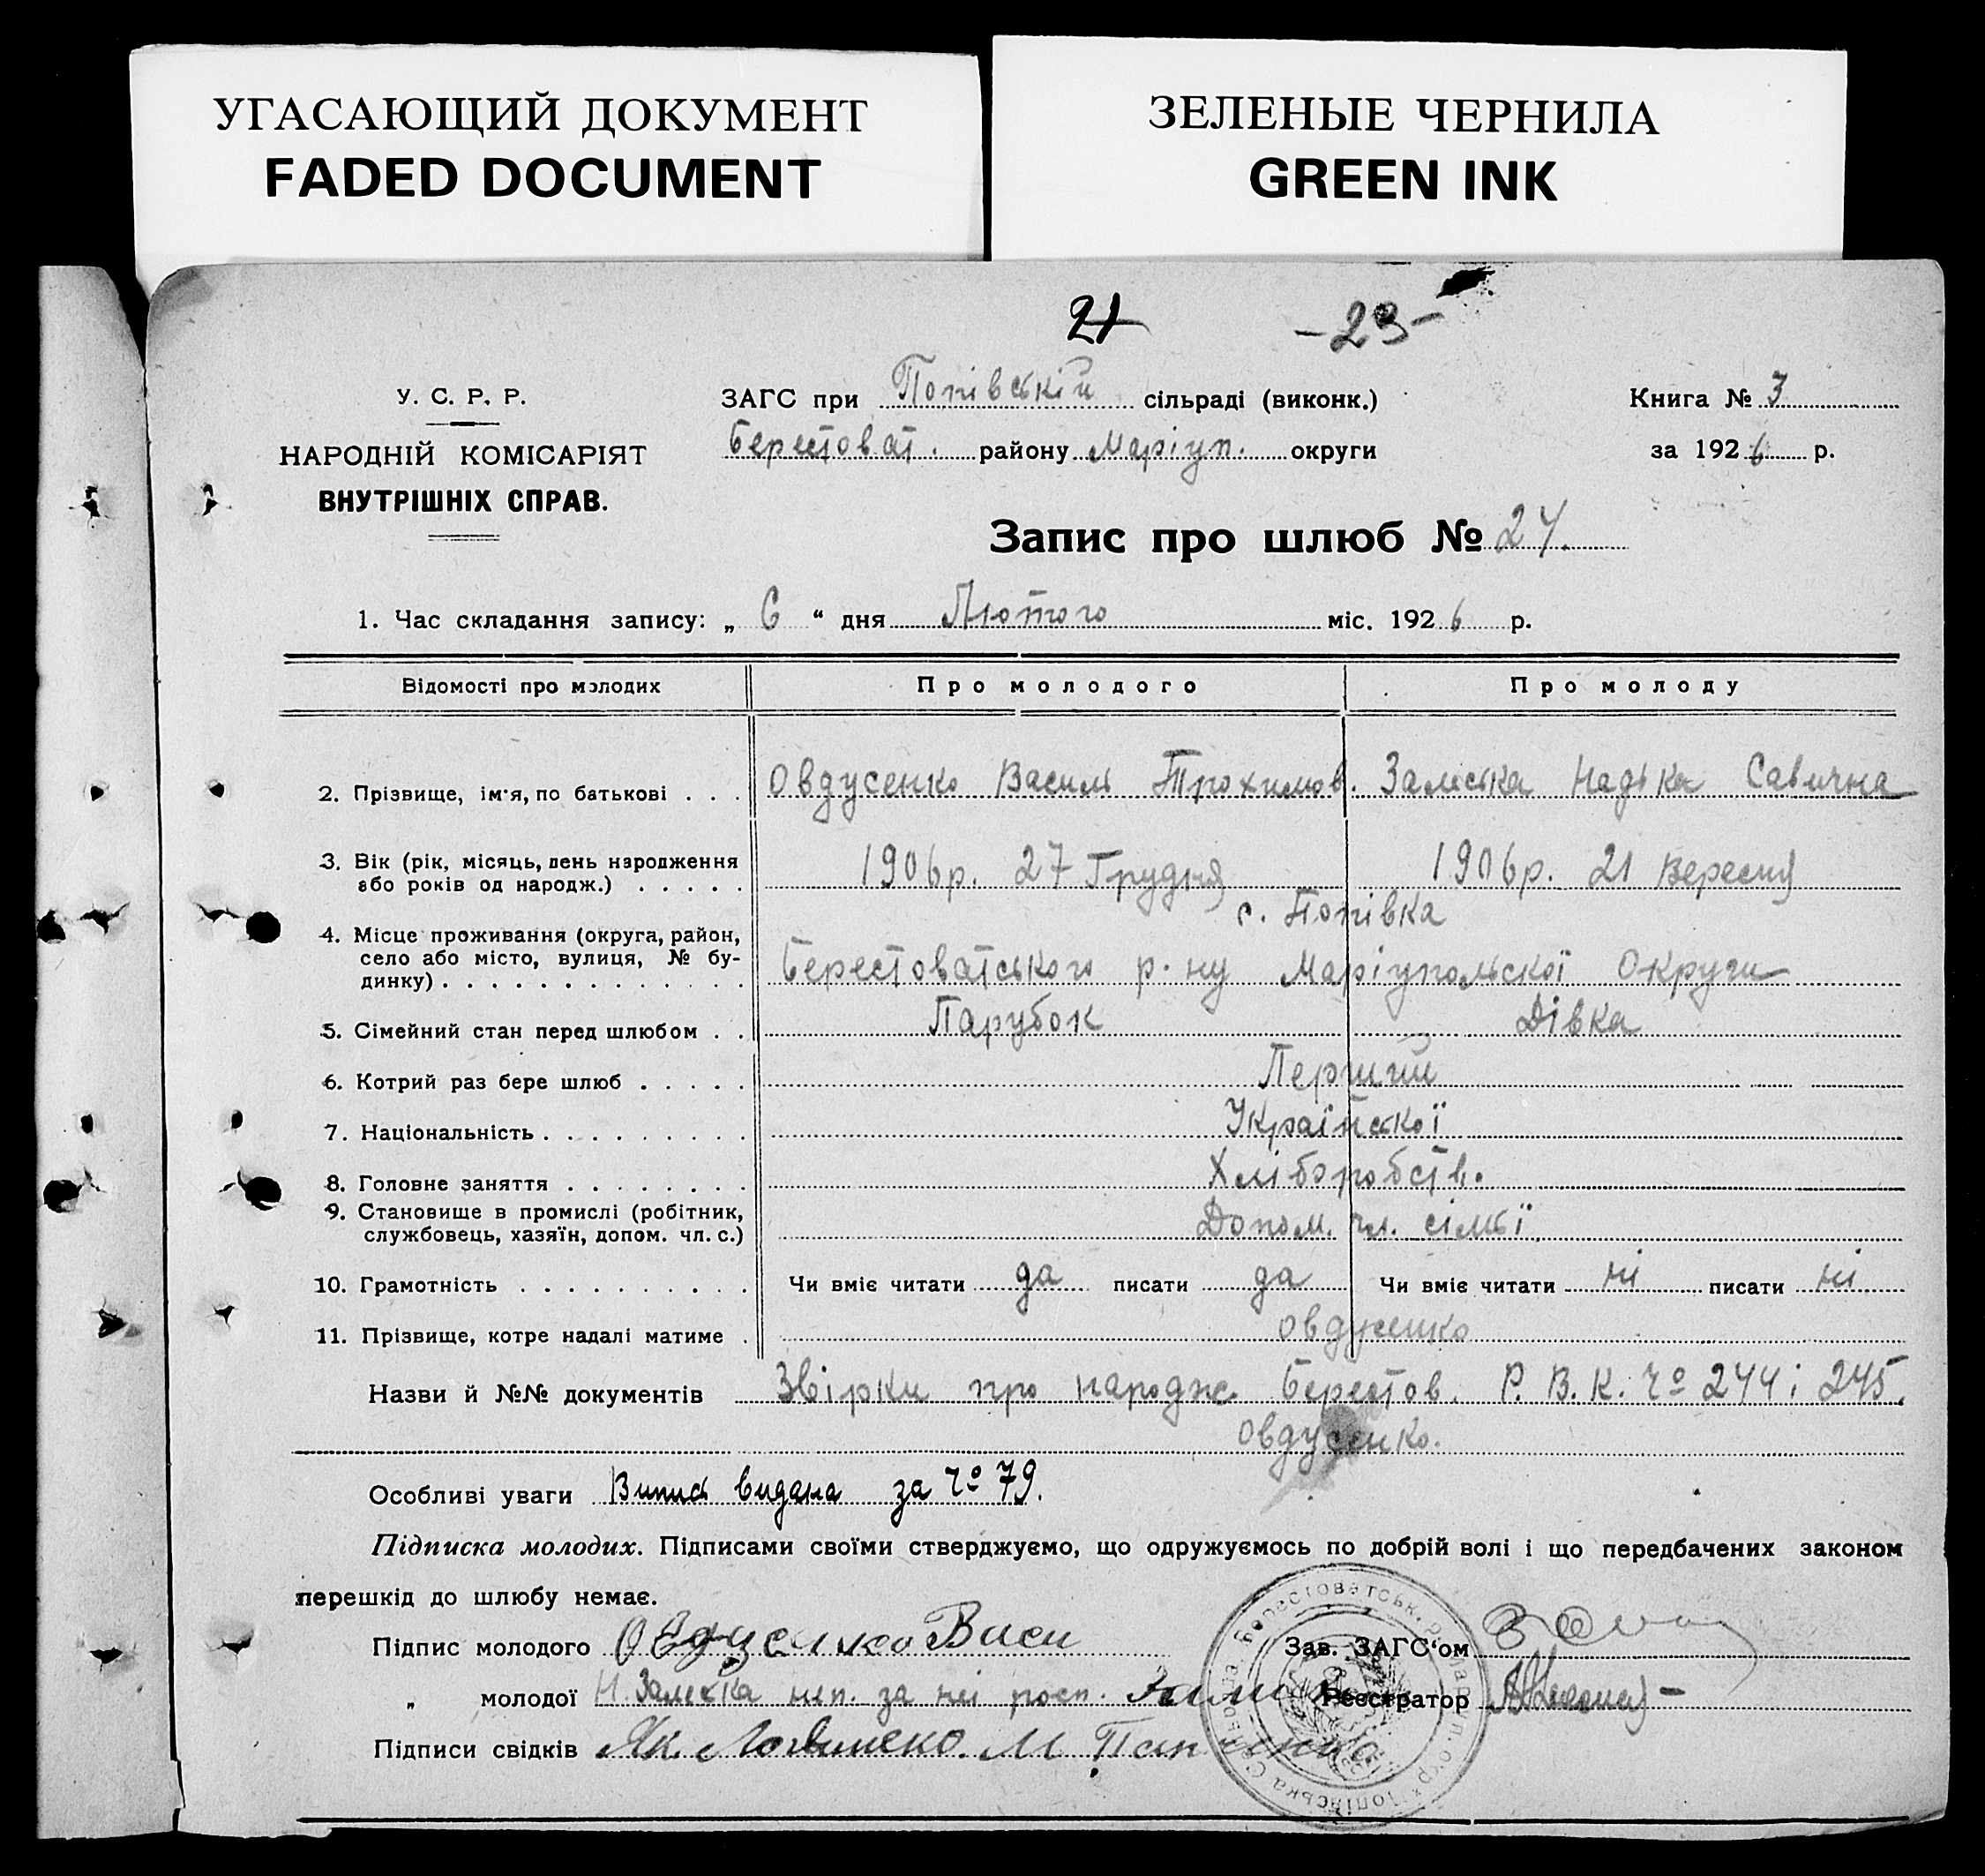 УГАСАЮЩИЙ ДОКУМЕНТ
FADED DOCUMENT
ЗЕЛЕНЫЕ ЧЕРНИЛА
GREEN INK
21
-23-
У. С. Р. Р.
НАРОДНІЙ КОМІСАРІЯТ
ВНУТРІШНІХ СПРАВ.
ЗАГС при Попівській сільраді (виконк.)
Берестоват. району Маріуп. округи
Книга № 3
за 1926 р.
Запис про шлюб № 24.
1. Час складання запису: „ 6 “ дня Лютого міс. 1926 р.
Відомості про молодих Про молодого Про молоду
2. Прізвище, ім'я, по батькові . . . Овдусенко Василь Трохимов. Заліська Надька Савична
3. Вік (рік, місяць, день народження
або років од народж.) . . . . . 1906р. 27 Грудня 1906р. 21 Вересня
с. Попівка
4. Місце проживання (округа, район,
село або місто, вулиця, № бу-
динку) . . . . . . . . . . . . . Берестоватського р-ну Маріупольскої Округи
5. Сімейний стан перед шлюбом . . Парубок Дівка
6. Котрий раз бере шлюб . . . . . Перший
7. Національність . . . . . . . . . Українскої
8. Головне заняття . . . . . . . . Хліборобств.
9. Становище в промислі (робітник,
службовець, хазяїн, допом. чл. с.) Допом. чл. сімьї
10. Грамотність . . . . . . . . . . Чи вміє читати да писати да Чи вміє читати ні писати ні
11. Прізвище, котре надалі матиме . Овдусенко
Назви й №№ документів Звірки про народж. Берестов. Р. В. К. Чо 244 і 245.
Овдусенко.
Особливі уваги Випись видана за Чо 79.
Підписка молодих. Підписами своїми стверджуємо, що одружуємось по добрій волі і що передбачених законом
перешкід до шлюбу немає.
Підпис молодого Овдусенко Васи Зав. ЗАГС'ом
„ молодої Н. Заліська неп. за неї росп. Реєстратор
Підписи свідків Як. Логвиненко. М